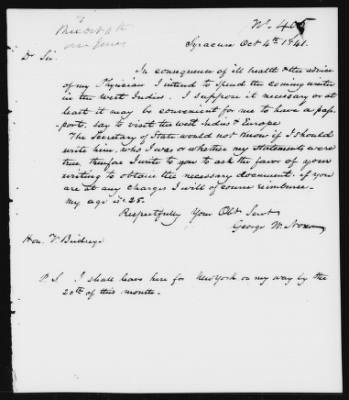 No. 405
Syracuse Oct 4th 1841.
Dr Sir.
In consequence of ill health & the advice
of my Physician I intend to spend the coming winter
in the West Indies. I suppose it necessary or at
least it may be convenient for me to have a pass
port, say to visit the West Indies & Europe
The Secretary of State would not know if I should
write him, who I was or whether my statements were
true, therefore I write to you to ask the favor of your
writing to obtain the necessary document. if you
are at any charges I will of course reimburse.
My age is 25.
Respectfully Your Obt Servt
George W. Noxon
Hon. V. Birdseye
P.S. I shall leave here for New York on my way by the
20th of this month.